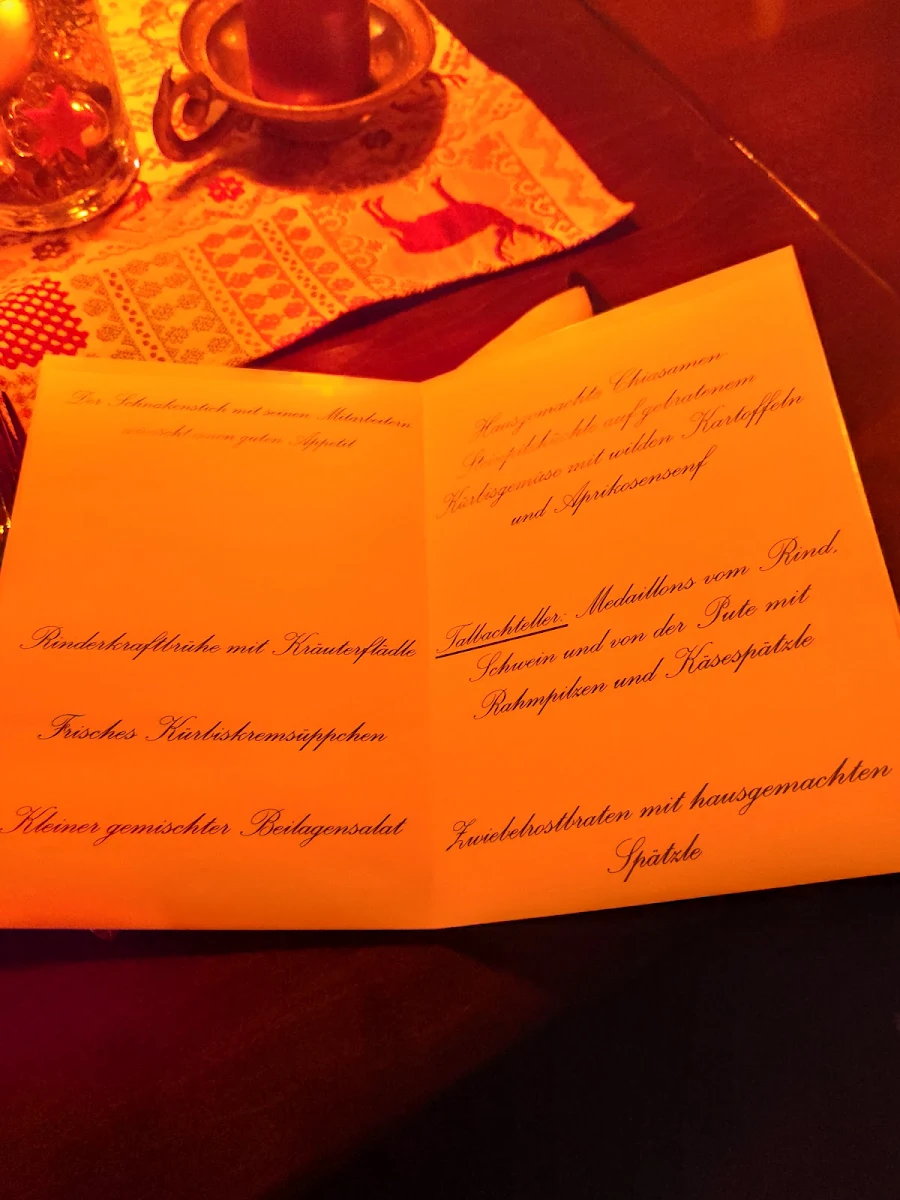 Der Schnakenstich mit seinen Mitarbeitern
wünscht einen guten Appetit
Rinderkraftbrühe mit Kräuterflädle
Frisches Kürbiskremsüppchen
Kleiner gemischter Beilagensalat
Hausgemachte Chiasamen
auf gebratenem
Kürbisgemüse mit wilden Kartoffeln
und Aprikosensenf
Talbachteller: Medaillons vom Rind,
Schwein und von der Pute mit
Rahmpilzen und Käsespätzle
Zwiebelrostbraten mit hausgemachten
Spätzle